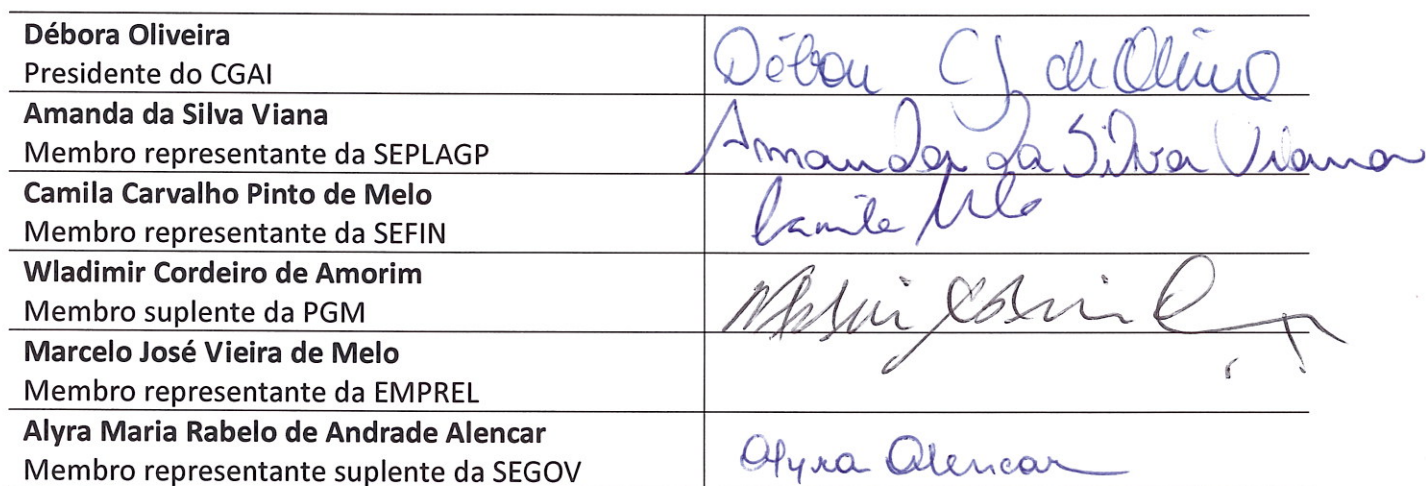 Débora Oliveira
Presidente do CGAI
Débora C J de Oliveira
Amanda da Silva Viana
Membro representante da SEPLAGP
Amanda da Silva Viana
Camila Carvalho Pinto de Melo
Membro representante da SEFIN
Camila Melo
Wladimir Cordeiro de Amorim
Membro suplente da PGM
Marcelo José Vieira de Melo
Membro representante da EMPREL
Alyra Maria Rabelo de Andrade Alencar
Membro representante suplente da SEGOV
Alyra Alencar